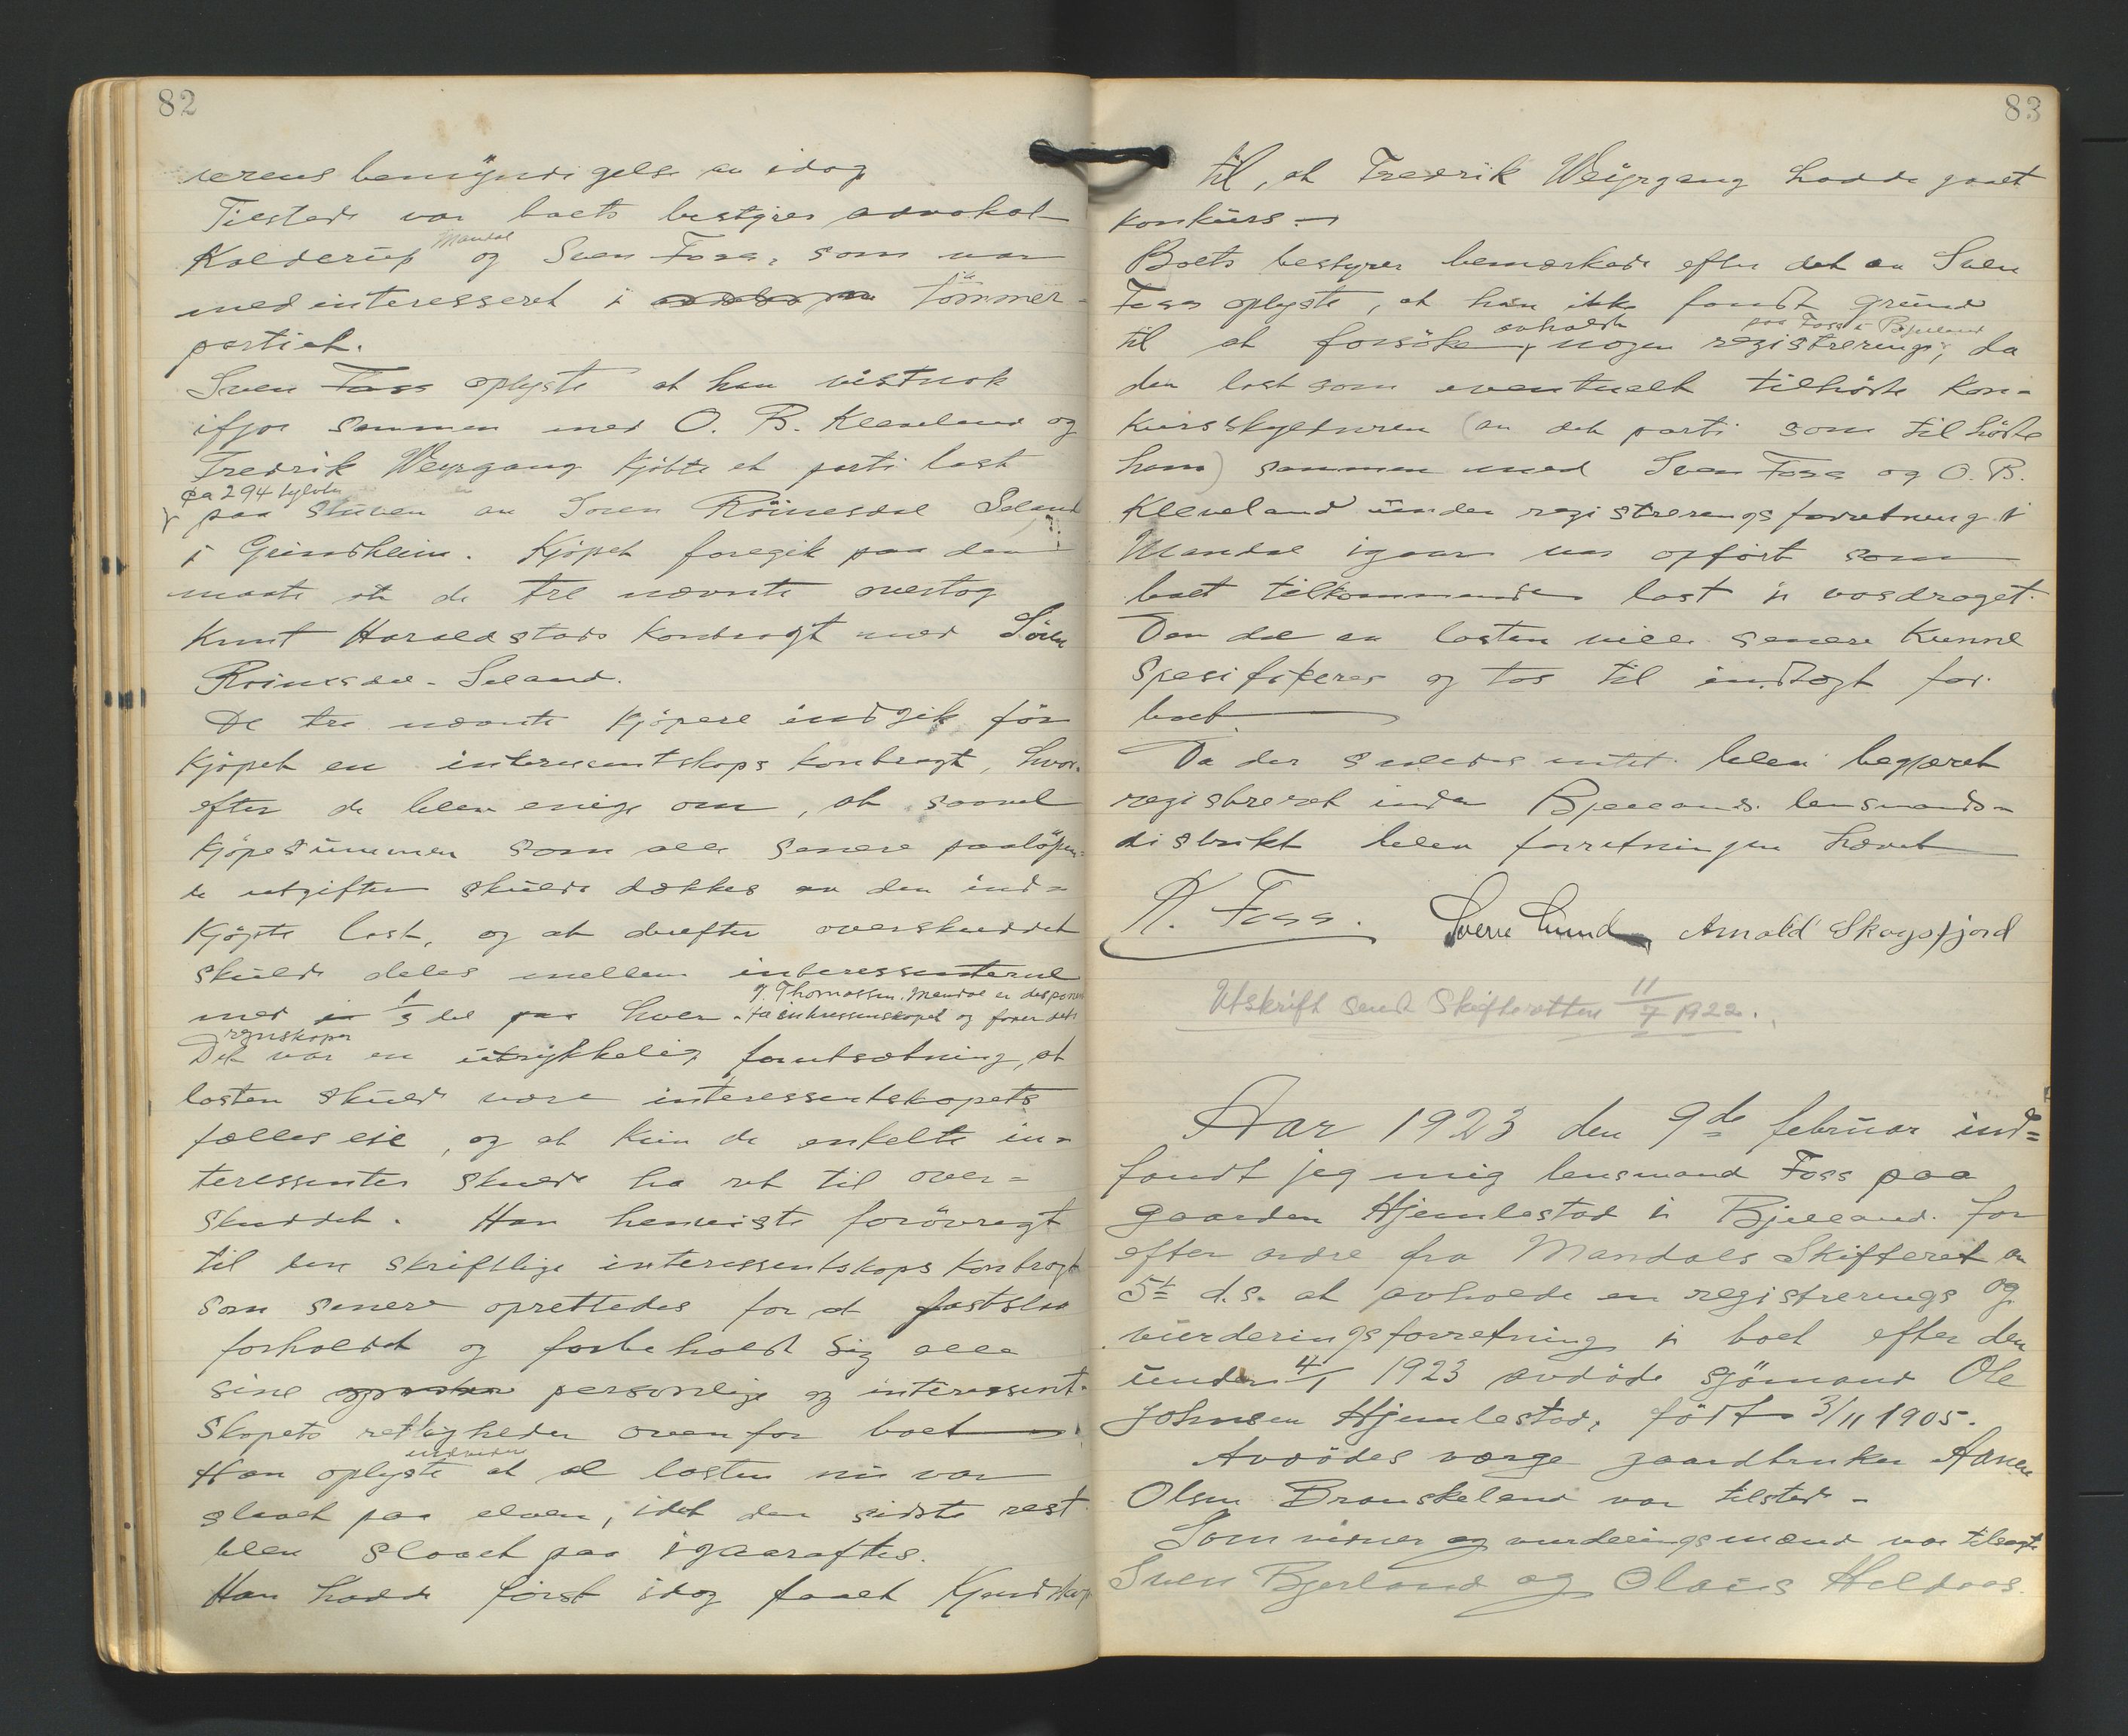 82
rerens bemyndigelse av idag
Tilstede var boets bestyrer advokat
Kolderup Mandal og Sven Foss, som var
medinteresseret i tømmer-
partiet.
Sven Foss oplyste at han vistnok
ifjor sammen med O. B. Kleveland og
Fredrik Weyrgang kjøbte et parti last
ca 294 tylvter
paa stuven av Søren Röinesdal Seland
i Grindheim. Kjøpet foregik paa den
maate at de tre nævnte overtog
Knut Haraldstads kontragt med Søren
Röinesdal-Seland.
De tre nævnte kjøpere indgik før
kjøpet en interesentskaps kontragt, hvor-
efter de blev enige om, at saavel
kjøpesummen som alle senere paaløpen-
de utgifter skulde dækkes av den ind-
kjøpte last, og at derefter overskuddet
skulde deles mellem interessenterne
J. Thomassen, Mandal er dispone
med 1/3 del paa hver. for interessenskapet og fører dets
regnskaper
Det var en uttrykkelig forutsætning, at
lasten skulde være interessentskapets
fælleseie, og at kun de enkelte in-
teressenter skulde ha ret til over-
skuddet. Han henviste forøvrigt
til den skriftlige interessentskaps kontragt
som senere oprettedes for at fastslaa
forholdet og forbeholdt sig alle
sine personlige og interessent-
skapets rettigheder ovenfor boet
Han oplyste endvidere at al lasten nu var
slaaet paa elven, idet den sidste rest
blev slaaet paa igaaraftes.
Han hadde først idag faaet kjendskap
83
til, at Fredrik Weyrgang hadde gaaet
konkurs.
Boets bestyrer bemerkede efter det av Sven
Foss oplyste, at han ikke fandt grund
til at forsøke avholdt nogen registrering paa Foss i Bjelland, da
den last som eventuelt tilhørte kon-
kursskyldneren (av det parti som tilhørte
ham) sammen med Sven Foss og O. B.
Kleveland under registreringsforretning i
Mandal igaar var opført som
boet tilkommende last i vasdraget.
Den del av lasten ville senere kunne
spesifiseres og tas til indtægt for
boet
Da der saaledes intet blev begjæret
registreret inden Bjelland lensmands-
distrikt blev forretningen hævet
K. Foss. Sverre Lund Arnold Skogsfjord
Utskrift sendt Skifteretten 11/7 1922.
Aar 1923 den 9de februar ind=
fandt jeg mig lensmand Foss paa
gaarden Hjemlestad i Bjelland for
efter ordre fra Mandals Skifteret av
5t d.s. at avholde en registrerings og
vurderingsforretning i boet efter den
under 4/1 1923 avdøde sjømand Ole
Johnsen Hjemlestad, født 3/11 1905.
Avdødes værge gaardbruker Aanen
Olsen Bronskeland var tilstede -
Som vidner og vurderingsmænd var tilsagte
Sven Bjerland og Olaus Heldaas.